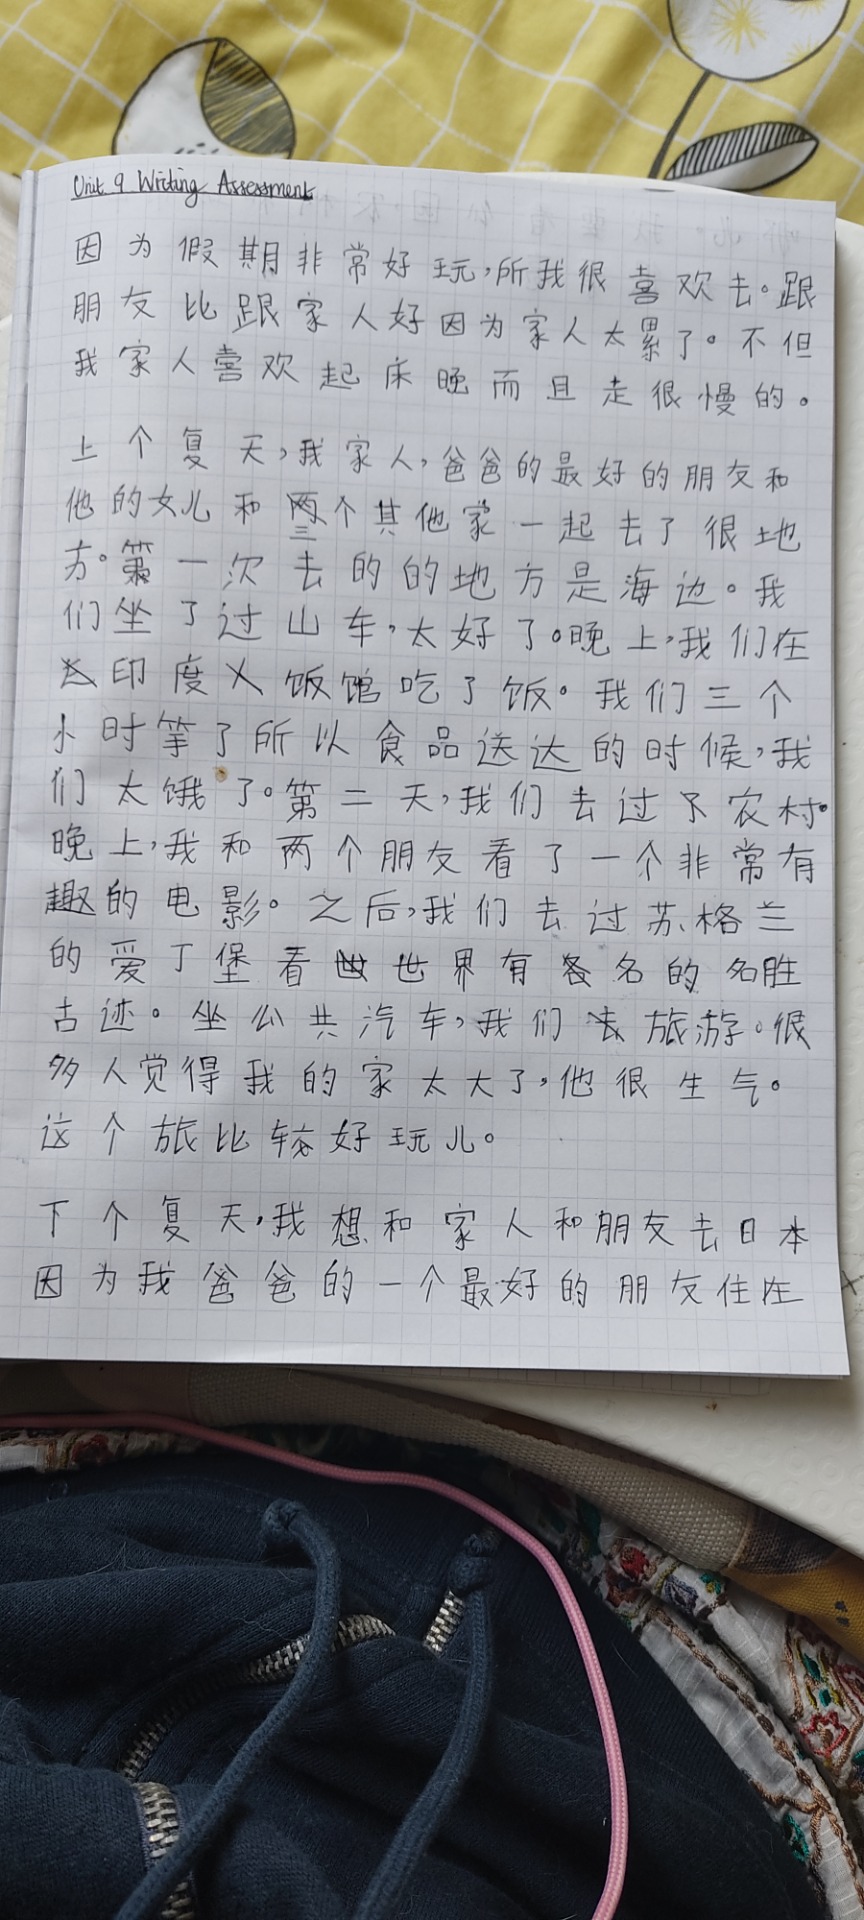 Unit 9 Writing Assessment
因为假期非常好玩，所我很喜欢去。跟
朋友比跟家人好因为家人太累了。不但
我家人喜欢起床晚而且走很慢的。
上个复天，我家人，爸爸的最好的朋友和
他的女儿和三个其他家一起去了很地
方。第一次去的的地方是海边。我
们坐了过山车，太好了。晚上，我们在
印度人饭馆吃了饭。我们三个
小时等了所以食品送达的时候，我
们太饿了。第二天，我们去过了农村。
晚上，我和两个朋友看了一个非常有
趣的电影。之后，我们去过苏格兰
的爱丁堡看世界有名的名胜
古迹。坐公共汽车，我们去旅游。很
多人觉得我的家太大了，他很生气。
这个旅比较好玩儿。
下个复天，我想和家人和朋友去日本
因为我爸爸的一个最好的朋友住在